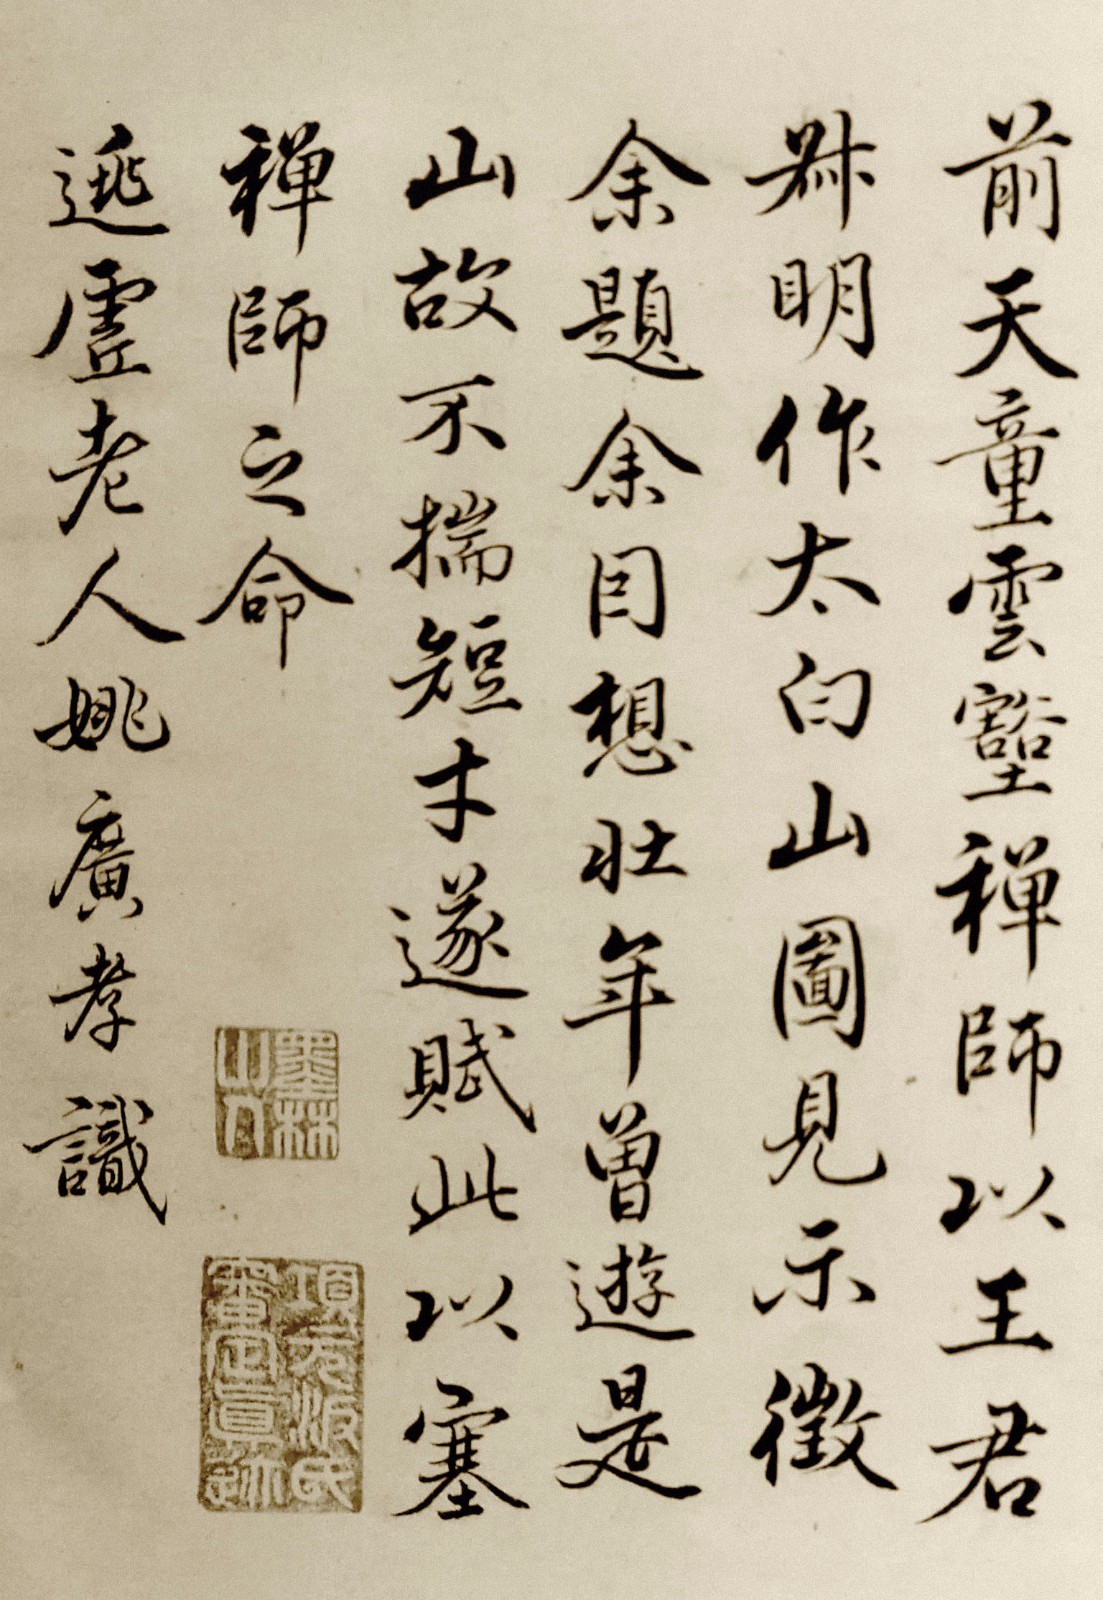 前天童雲壑禪師以王君
叔明作太白山圖見示徵
余題余因想壯年曾遊是
山故不揣短才遂賦此以塞
禪師之命
逃虛老人姚廣孝識
墨林山人
項元汴氏審定真跡